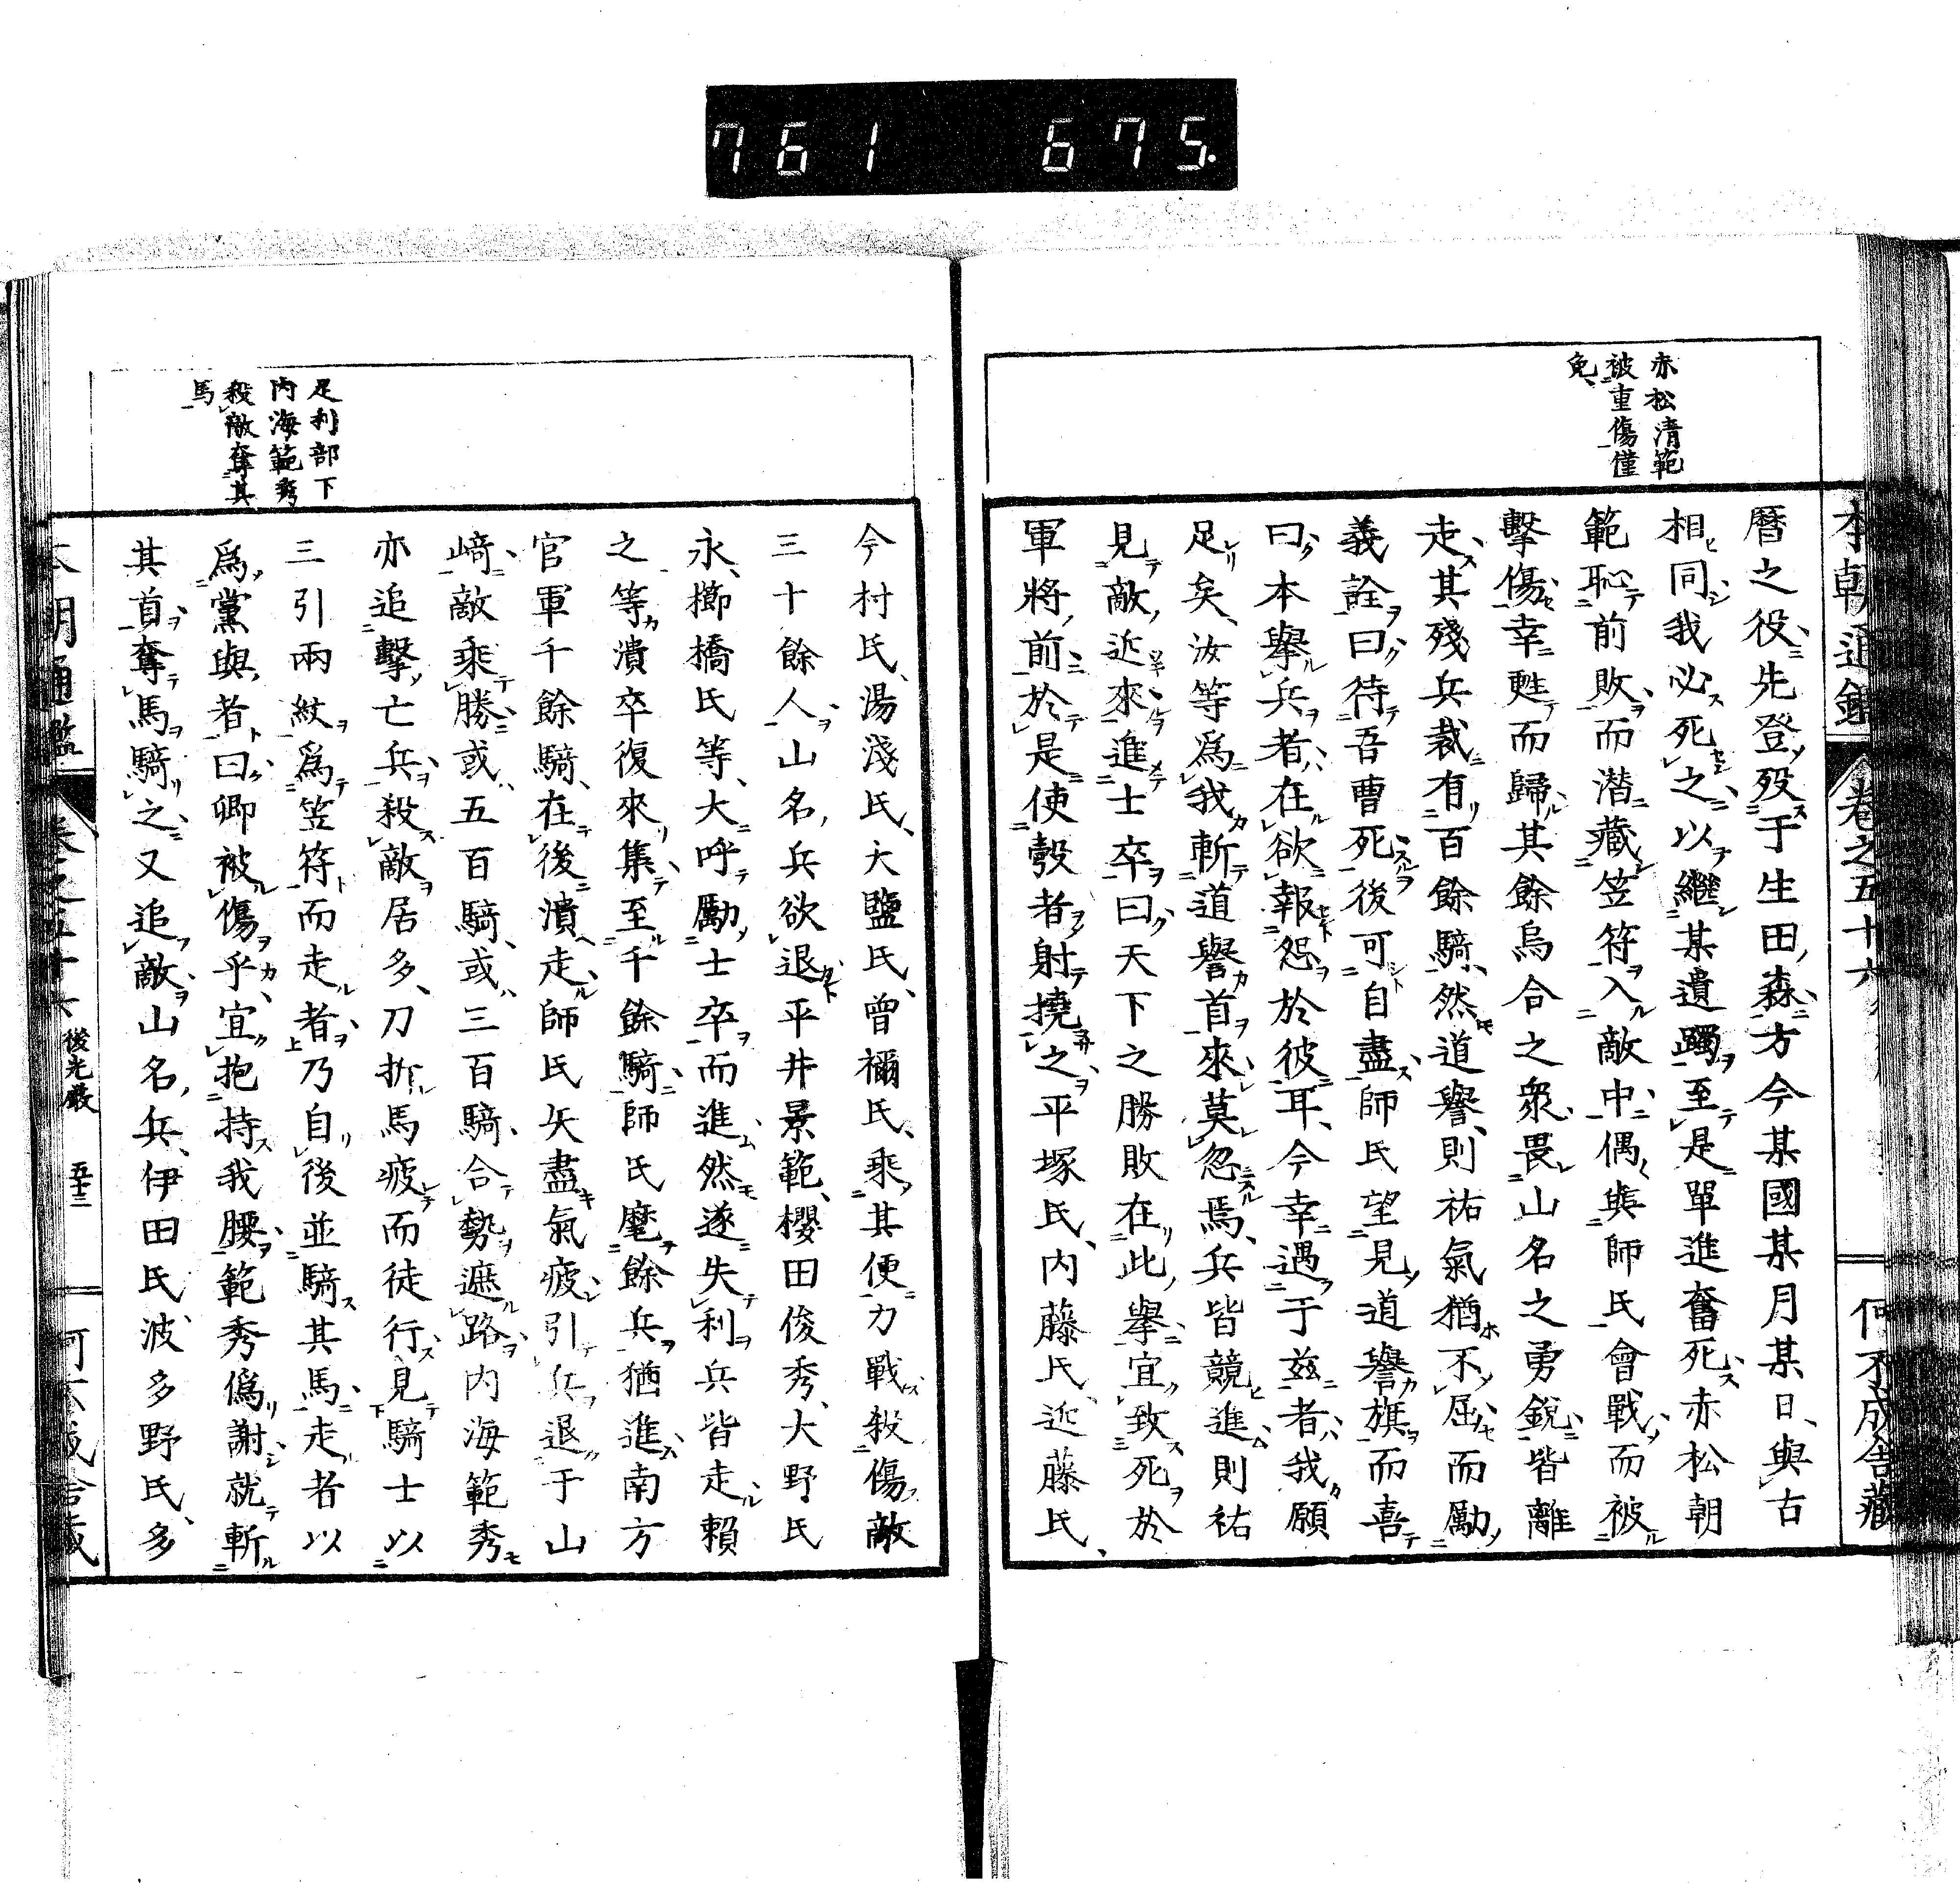 761 675.
本朝通鑑 卷之五十六 何不成舍藏
赤松清範
被重傷僅
免
曆之役先登歿于生田森方今某國某月某日與古
相同我必死之以繼某遺躅至是單進奮死赤松朝
範恥前敗而潜藏笠符入敵中偶與師氏會戰而被
擊傷幸甦而歸其餘烏合之衆畏山名之勇銳皆離
走其殘兵裁有百餘騎然道譽則祐氣猶不屈而勵
義詮曰待吾曹死後可自盡師氏望見道譽旗而喜
曰本擧兵者在欲報怨於彼耳今幸遇于茲者我願
足矣汝等爲我斬道譽首來莫忽焉兵皆競進則祐
見敵近來進士卒曰天下之勝敗在此擧宜致死於
軍將前於是使彀者射撓之平塚氏内藤氏近藤氏
足利部下
内海範秀
殺敵奪其
馬
今村氏湯淺氏大鹽氏曾禰氏乘其便力戰殺傷敵
三十餘人山名兵欲退平井景範櫻田俊秀大野氏
永擲橋氏等大呼勵士卒而進然遂失利兵皆走賴
之等潰卒復來集至千餘騎師氏麾餘兵猶進南方
官軍千餘騎在後潰走師氏矢盡氣疲引兵退于山
﨑敵乘勝或五百騎或三百騎合勢遮路内海範秀
亦追擊亡兵殺敵居多刀折馬疲而徒行見騎士以
三引兩紋爲笠符而走者乃自後並騎其馬走者以
爲黨與者曰卿被傷乎宜抱持我腰範秀僞謝就斬
其首奪馬騎之又追敵山名兵伊田氏波多野氏多
本朝通鑑 卷之五十六 後光嚴 五十三 何不成舍藏